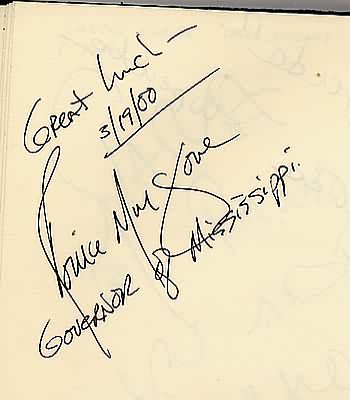 Great lunch –
3/19/00
Ronnie Musgrove
Governor of Mississippi.